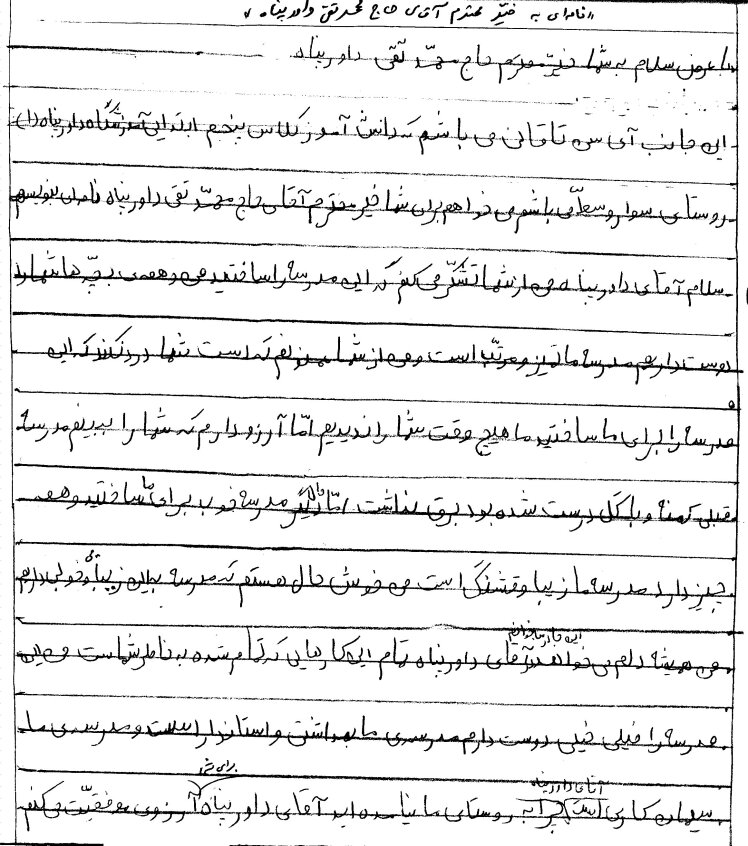 «نامه‌ای به خیّر محترم آقای حاج محمدتقی داورپناه»
با عرض سلام به شما خیّر محترم حاج محمّد تقی داورپناه
این جانب آی سن تاقانی می باشم که دانش آموز کلاس پنجم ابتدایی آموزشگاه داورپناه (۱)
روستای سوار وسعلّی باشم می خواهم برای شما خیّر محترم آقای حاج محمّد تقی داورپناه نامه‌ای بنویسم
سلام آقای داورپناه من از شما تشکّر می‌کنم که این مدرسه را ساختید من و همه‌ی بچّه ها شما را
دوست داریم مدرسه ما تمیز و مرتّب است و من از شما ممنونم که است شما درد نکند که این
مدرسه را برای ما ساختید ما هیچ وقت شما را ندیدیم امّا آرزو دارم که شما را ببینم مدرسه
قبلی کهنه و با گل درست شده بود برق نداشت امّا حالا دیگر مدرسه خوب برای ما ساختید و همه
چیز دارد مدرسه ما زیبا و قشنگ است من خوش حال هستم که مدرسه به این زیبایی و خوبی داریم
من همیشه دلم می خواهد آقای داورپناه این جا بیاید تمام این کارهایی که تمام شده به خاطر شماست من این
مدرسه را خیلی خیلی دوست دارم مدرسه‌ی ما بهداشتی و استاندارد است و مدرسه‌ی ما
سیمان کاری است آقا داورپناه چرا به روستای ما نیامده اید آقای داورپناه برای شما آرزوی موفقیّت می‌کنم